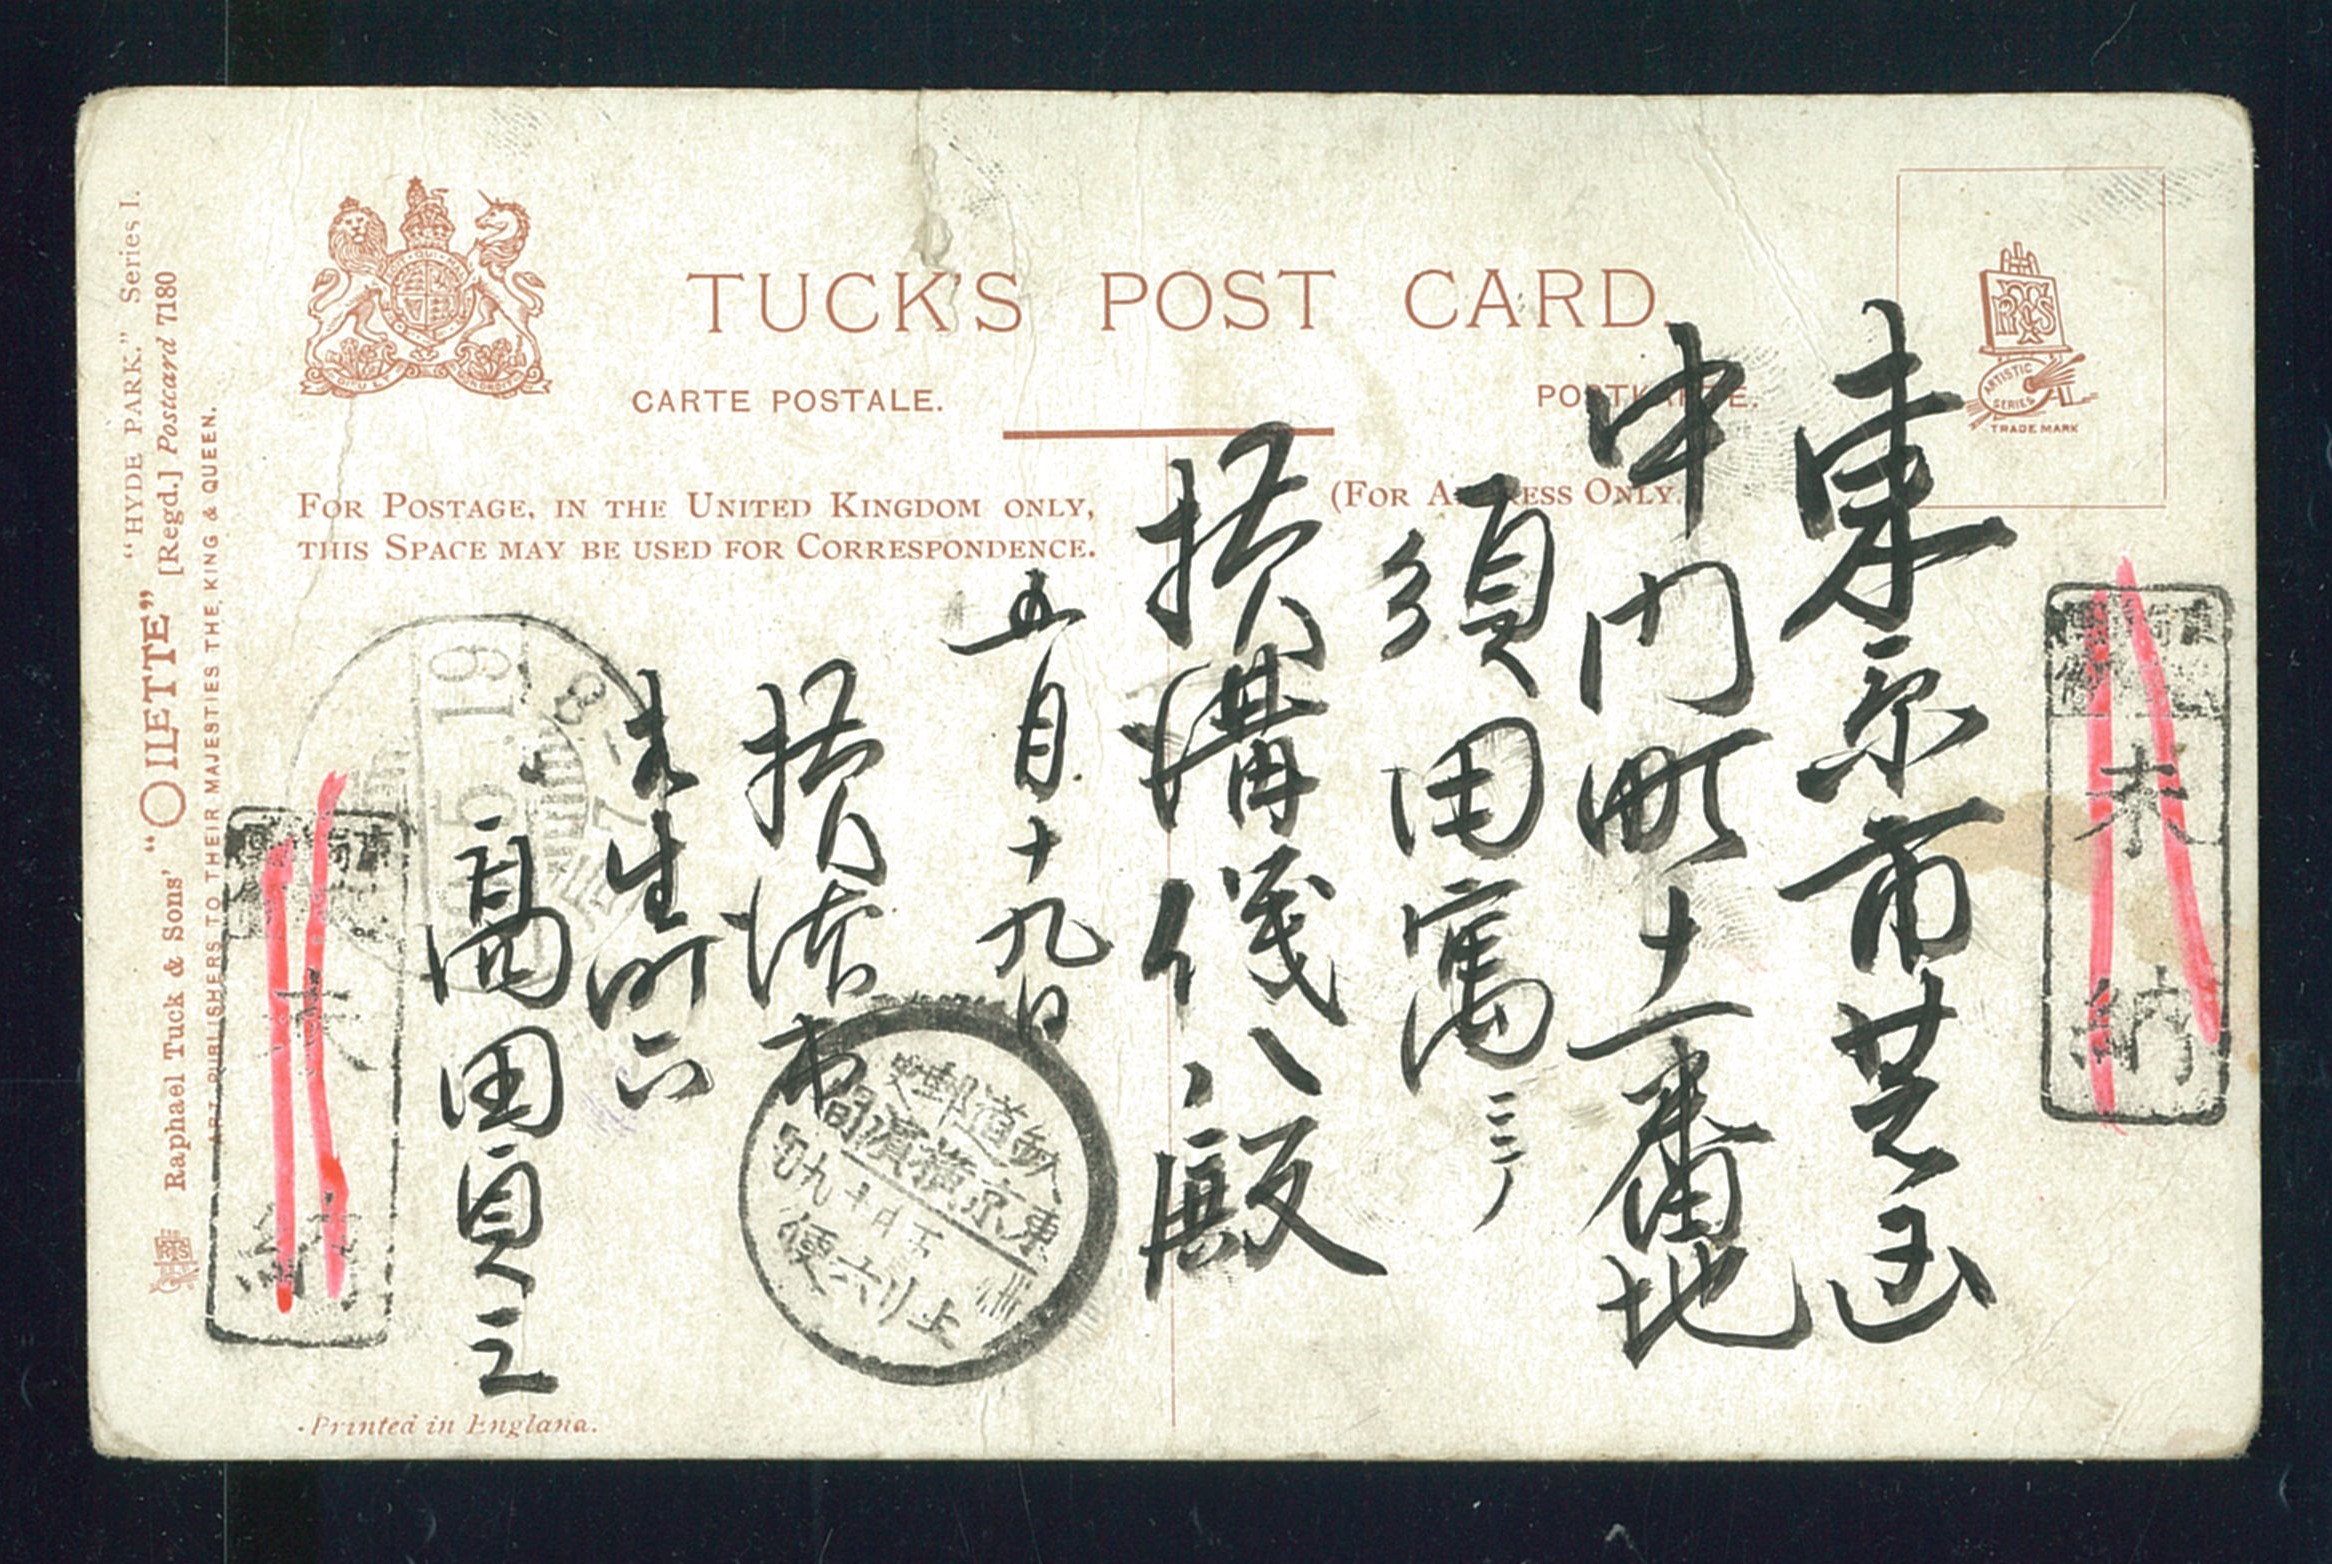 TUCK'S POST CARD.
CARTE POSTALE.
POSTKARTE.
FOR POSTAGE, IN THE UNITED KINGDOM ONLY,
THIS SPACE MAY BE USED FOR CORRESPONDENCE.
(FOR ADDRESS ONLY.
ARTISTIC
SERIES
TRADE MARK
東京市芝区
中門町十一番地
須田寓ニテ
横溝儀八殿
五月十九日
横浜市
末生町六
高田貞三
未納
未納
鉄道郵便
東京横濱間
五月十九日
上り六便
19
5
"HYDE PARK." Series I.
"OILETTE" [Regd.] Postcard 7180
Raphael Tuck & Sons'
ART PUBLISHERS TO THEIR MAJESTIES THE KING & QUEEN.
Printed in England.